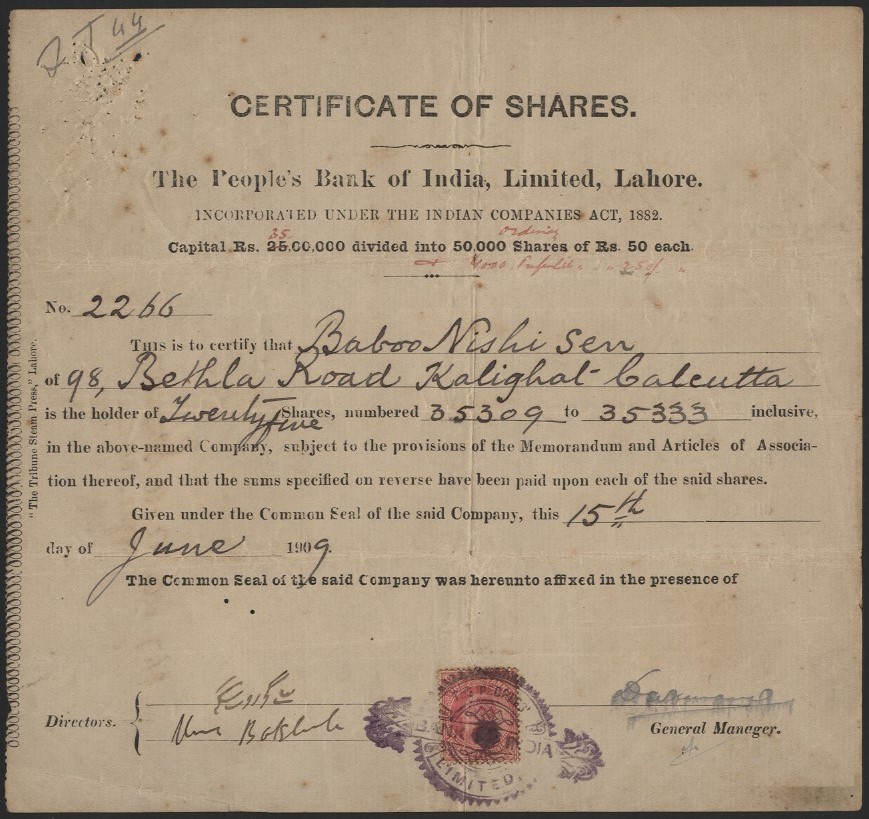 CERTIFICATE OF SHARES.
The People's Bank of India, Limited, Lahore.
INCORPORATED UNDER THE INDIAN COMPANIES ACT, 1882.
35
Capital Rs. 25,00,000 divided into 50,000 Shares of Rs. 50 each.
No. 2266
THIS is to certify that Baboo Nishi Sen
of 98, Bethla Road Kalighat Calcutta
is the holder of Twenty five Shares, numbered 35309 to 35333 inclusive,
in the above-named Company, subject to the provisions of the Memorandum and Articles of Associa-
tion thereof, and that the sums specified on reverse have been paid upon each of the said shares.
Given under the Common Seal of the said Company, this 15th
day of June 1909.
The Common Seal of the said Company was hereunto affixed in the presence of
Directors.
General Manager.
PEOPLE'S
BANK INDIA
LIMITED.
"The Tribune Steam Press," Lahore.